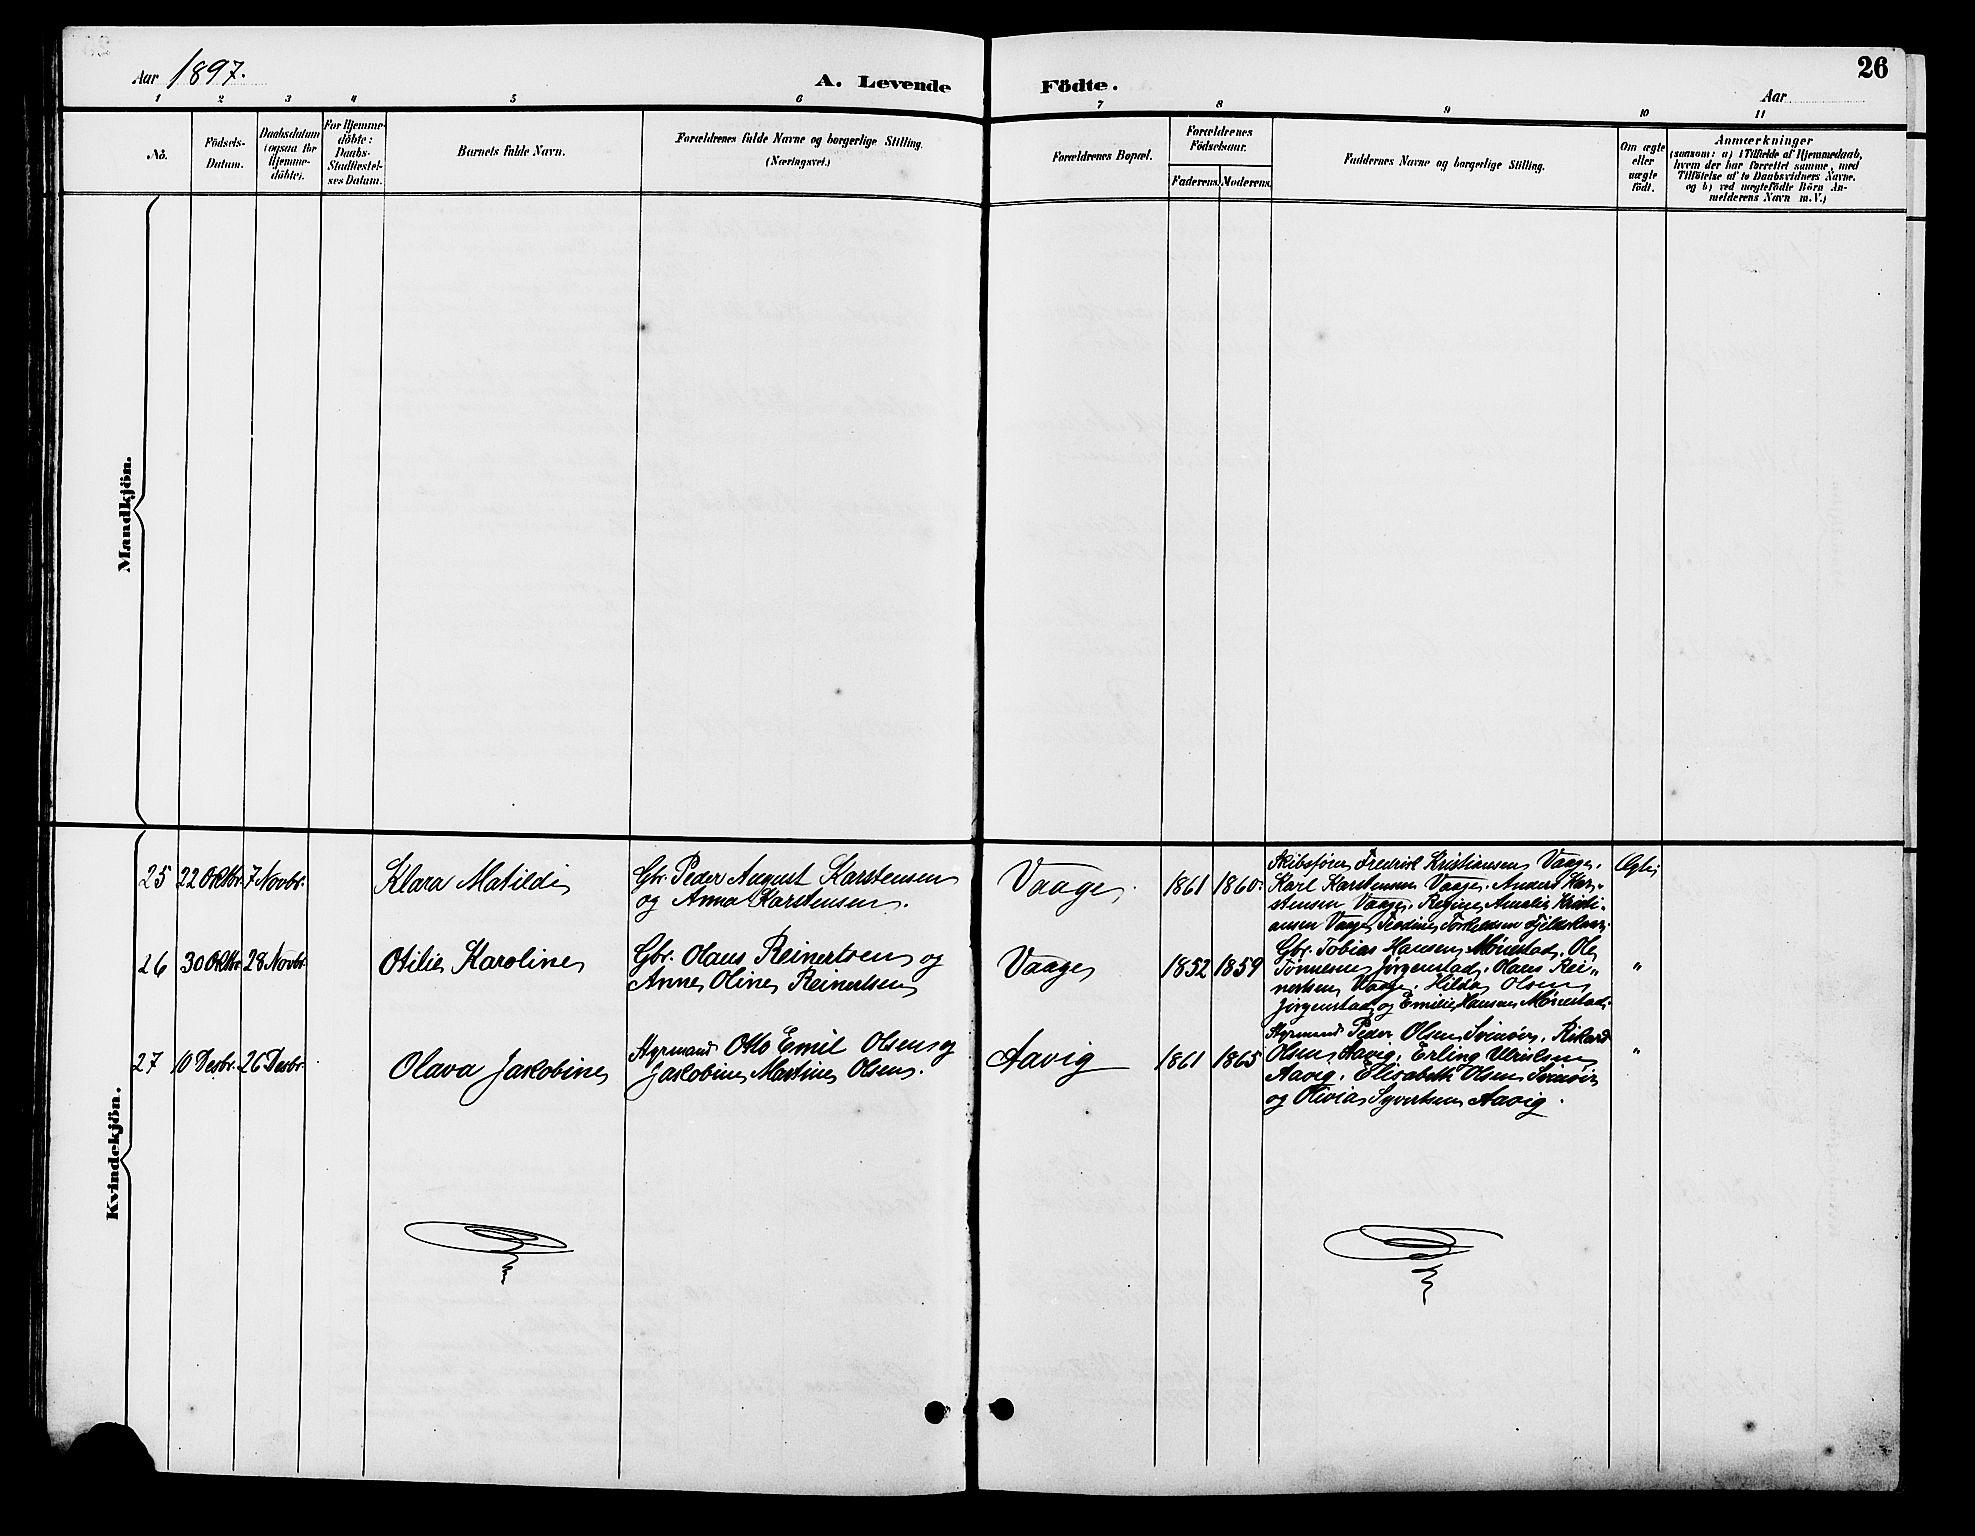 Aar 1897.
A. Levende Födte.
26
Aar
1 2 3 4 5 6 7 8 9 10 11
No.
Födsels-
Datum.
Daabsdatum
(ogsaa for
Hjemme-
döbte).
For Hjemme-
döbte:
Daabs-
Stadfæstel-
ses Datum.
Barnets fulde Navn.
Forældrenes fulde Navne og borgerlige Stilling.
(Næringsvei.)
Forældrenes Bopæl.
Forældrenes
Födselsaar.
Faderens.
Moderens.
Faddernes Navne og borgerlige Stilling.
Om ægte
eller
uægte
födt.
Anmærkninger
(saasom: a) i Tilfælde af Hjemmedaab,
hvem der har forrettet samme, med
Tilföielse af to Daabsvidners Navne.
og b) ved uægtefödte Börn An-
melderens Navn m.V.)
Mandkjön.
Kvindekjön.
25 22 Oktbr. 7 Novbr.
Klara Matilde
Gbr. Peder August Karstensen
og Anna Karstensen.
Vaage.
1861 1860.
Skibsfører Fredrik Kristiansen Vaage.
Karl Karstensen Vaage. Anders Kar-
stensen Vaage. Regine Amalie Kristi-
ansen Vaage, Torkelsen Fjeldskaar.
Ægte
26 30 Oktbr. 28 Novbr.
Otilie Karoline
Gbr. Olaus Reinertsen og
Anne Oline Reinertsen
Vaage
1852 1859
Gbr. Tobias Hansen Mønestad, Ole
Tønnesen Jørgenstad. Olaus Rei-
nertsen Vaage. Hilda Olsen
Jørgenstad og Emilie Hansen Mønestad.
"
27 10 Desbr. 26 Desbr.
Olava Jakobine
Styrmand Otto Emil Olsen og
Jakobine Martine Olsen.
Aavig
1861 1865
Styrmand Peder Olsen Svinør, Rikard
Olsen Aavig, Erling Ulriksen
Aavig, Elisabeth Olsen Svinør
og Olivia Syvertsen Aavig.
"